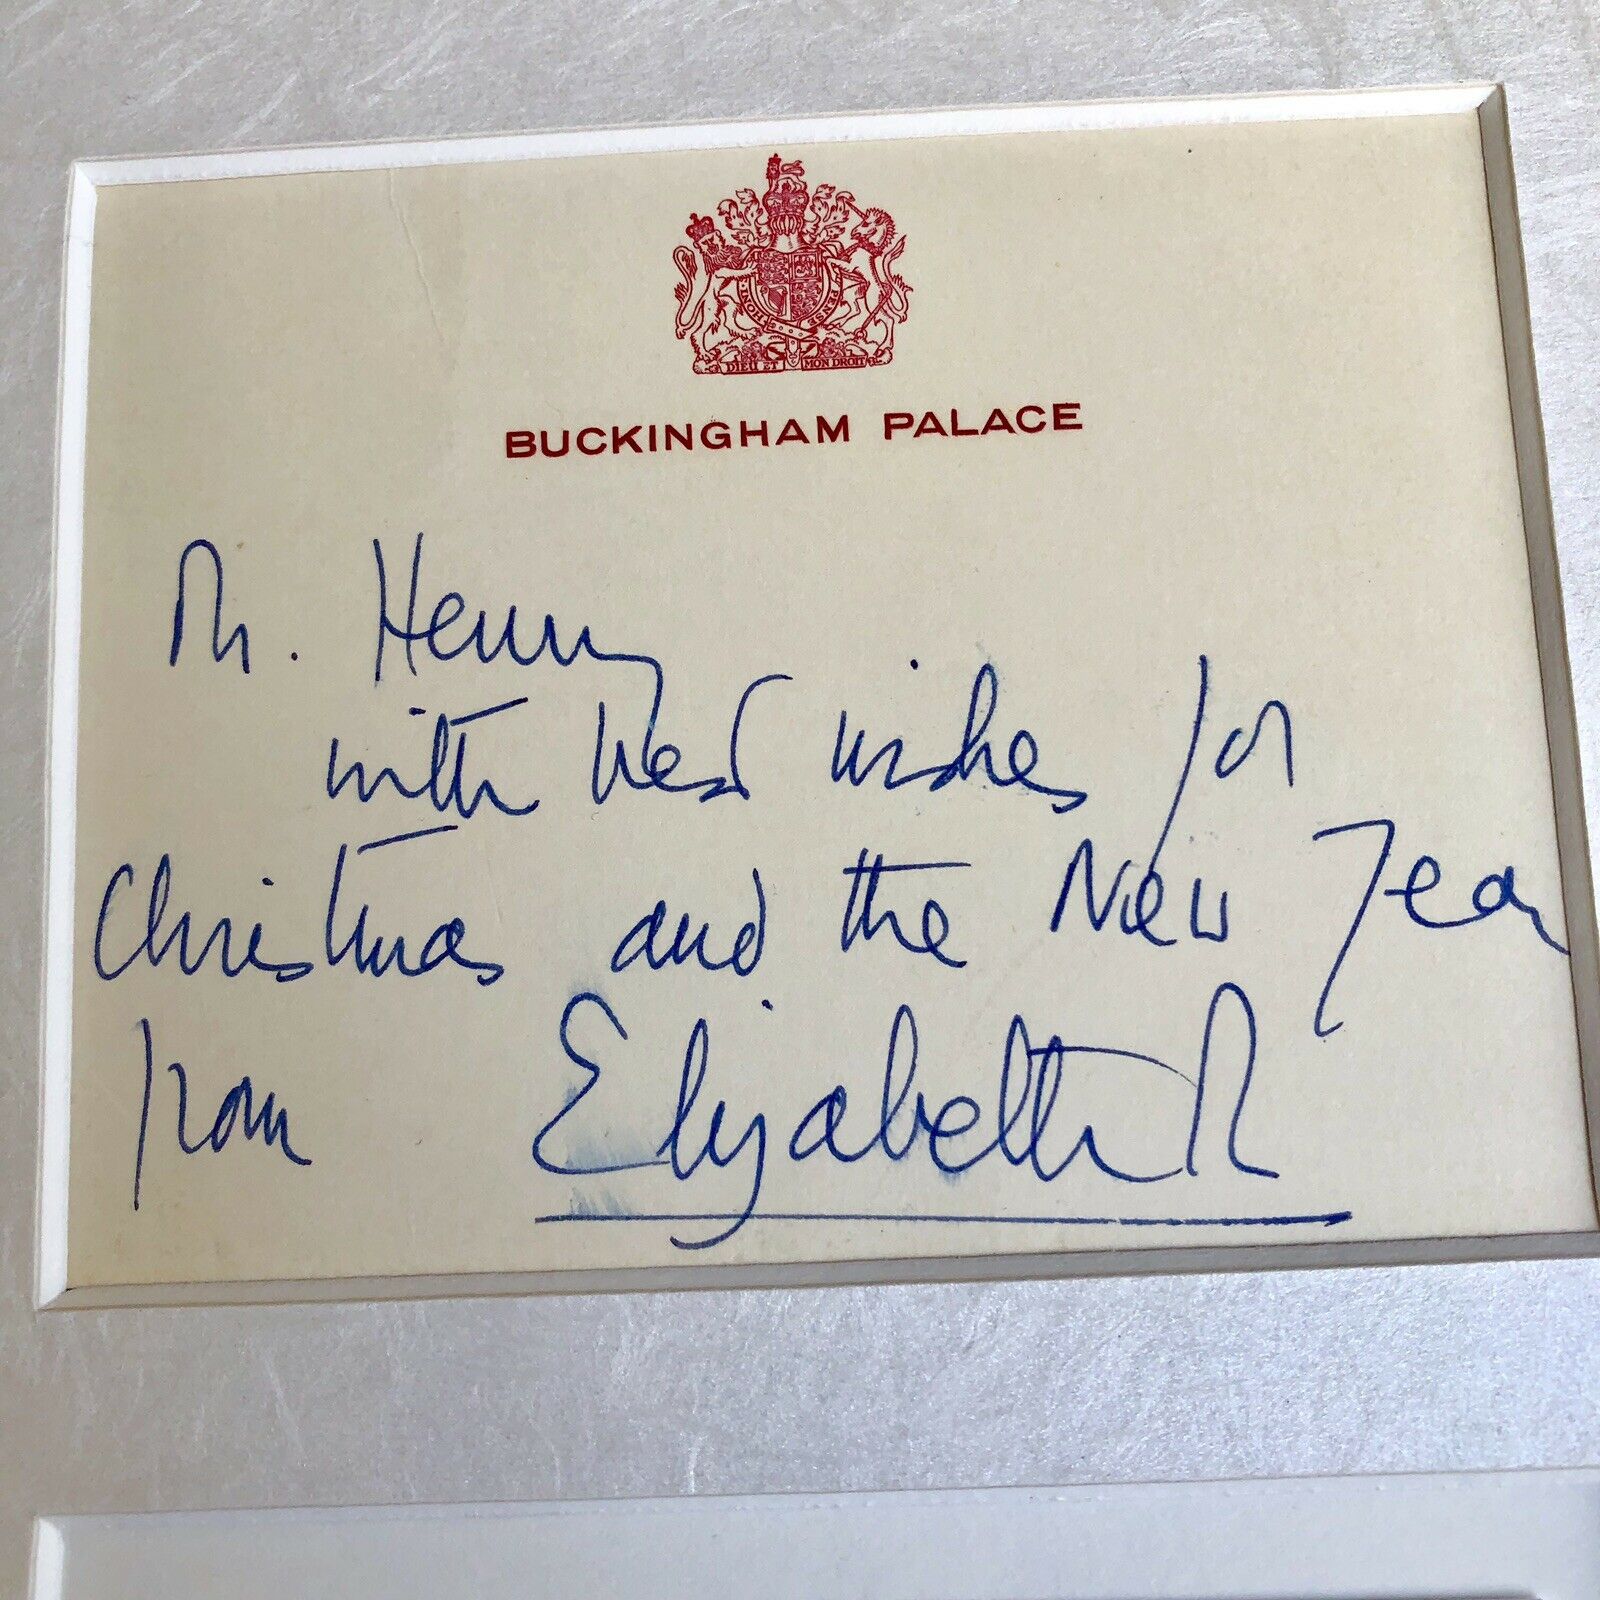 HONI PENSE
DIEU ET MON DROIT
BUCKINGHAM PALACE
Mr. Henry
with best wishes for
Christmas and the New Year
from Elizabeth R